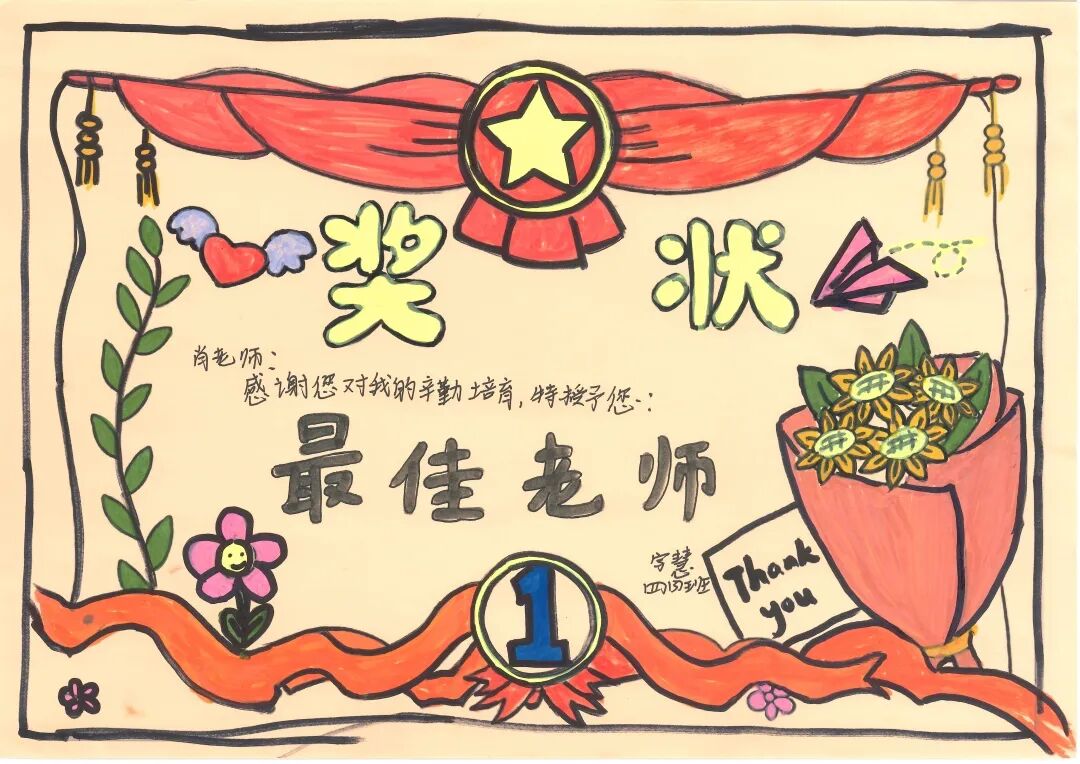 奖状
肖老师:
感谢您对我的辛勤培育,特授予您:
最佳老师
慧
四 班
Thank
you
1